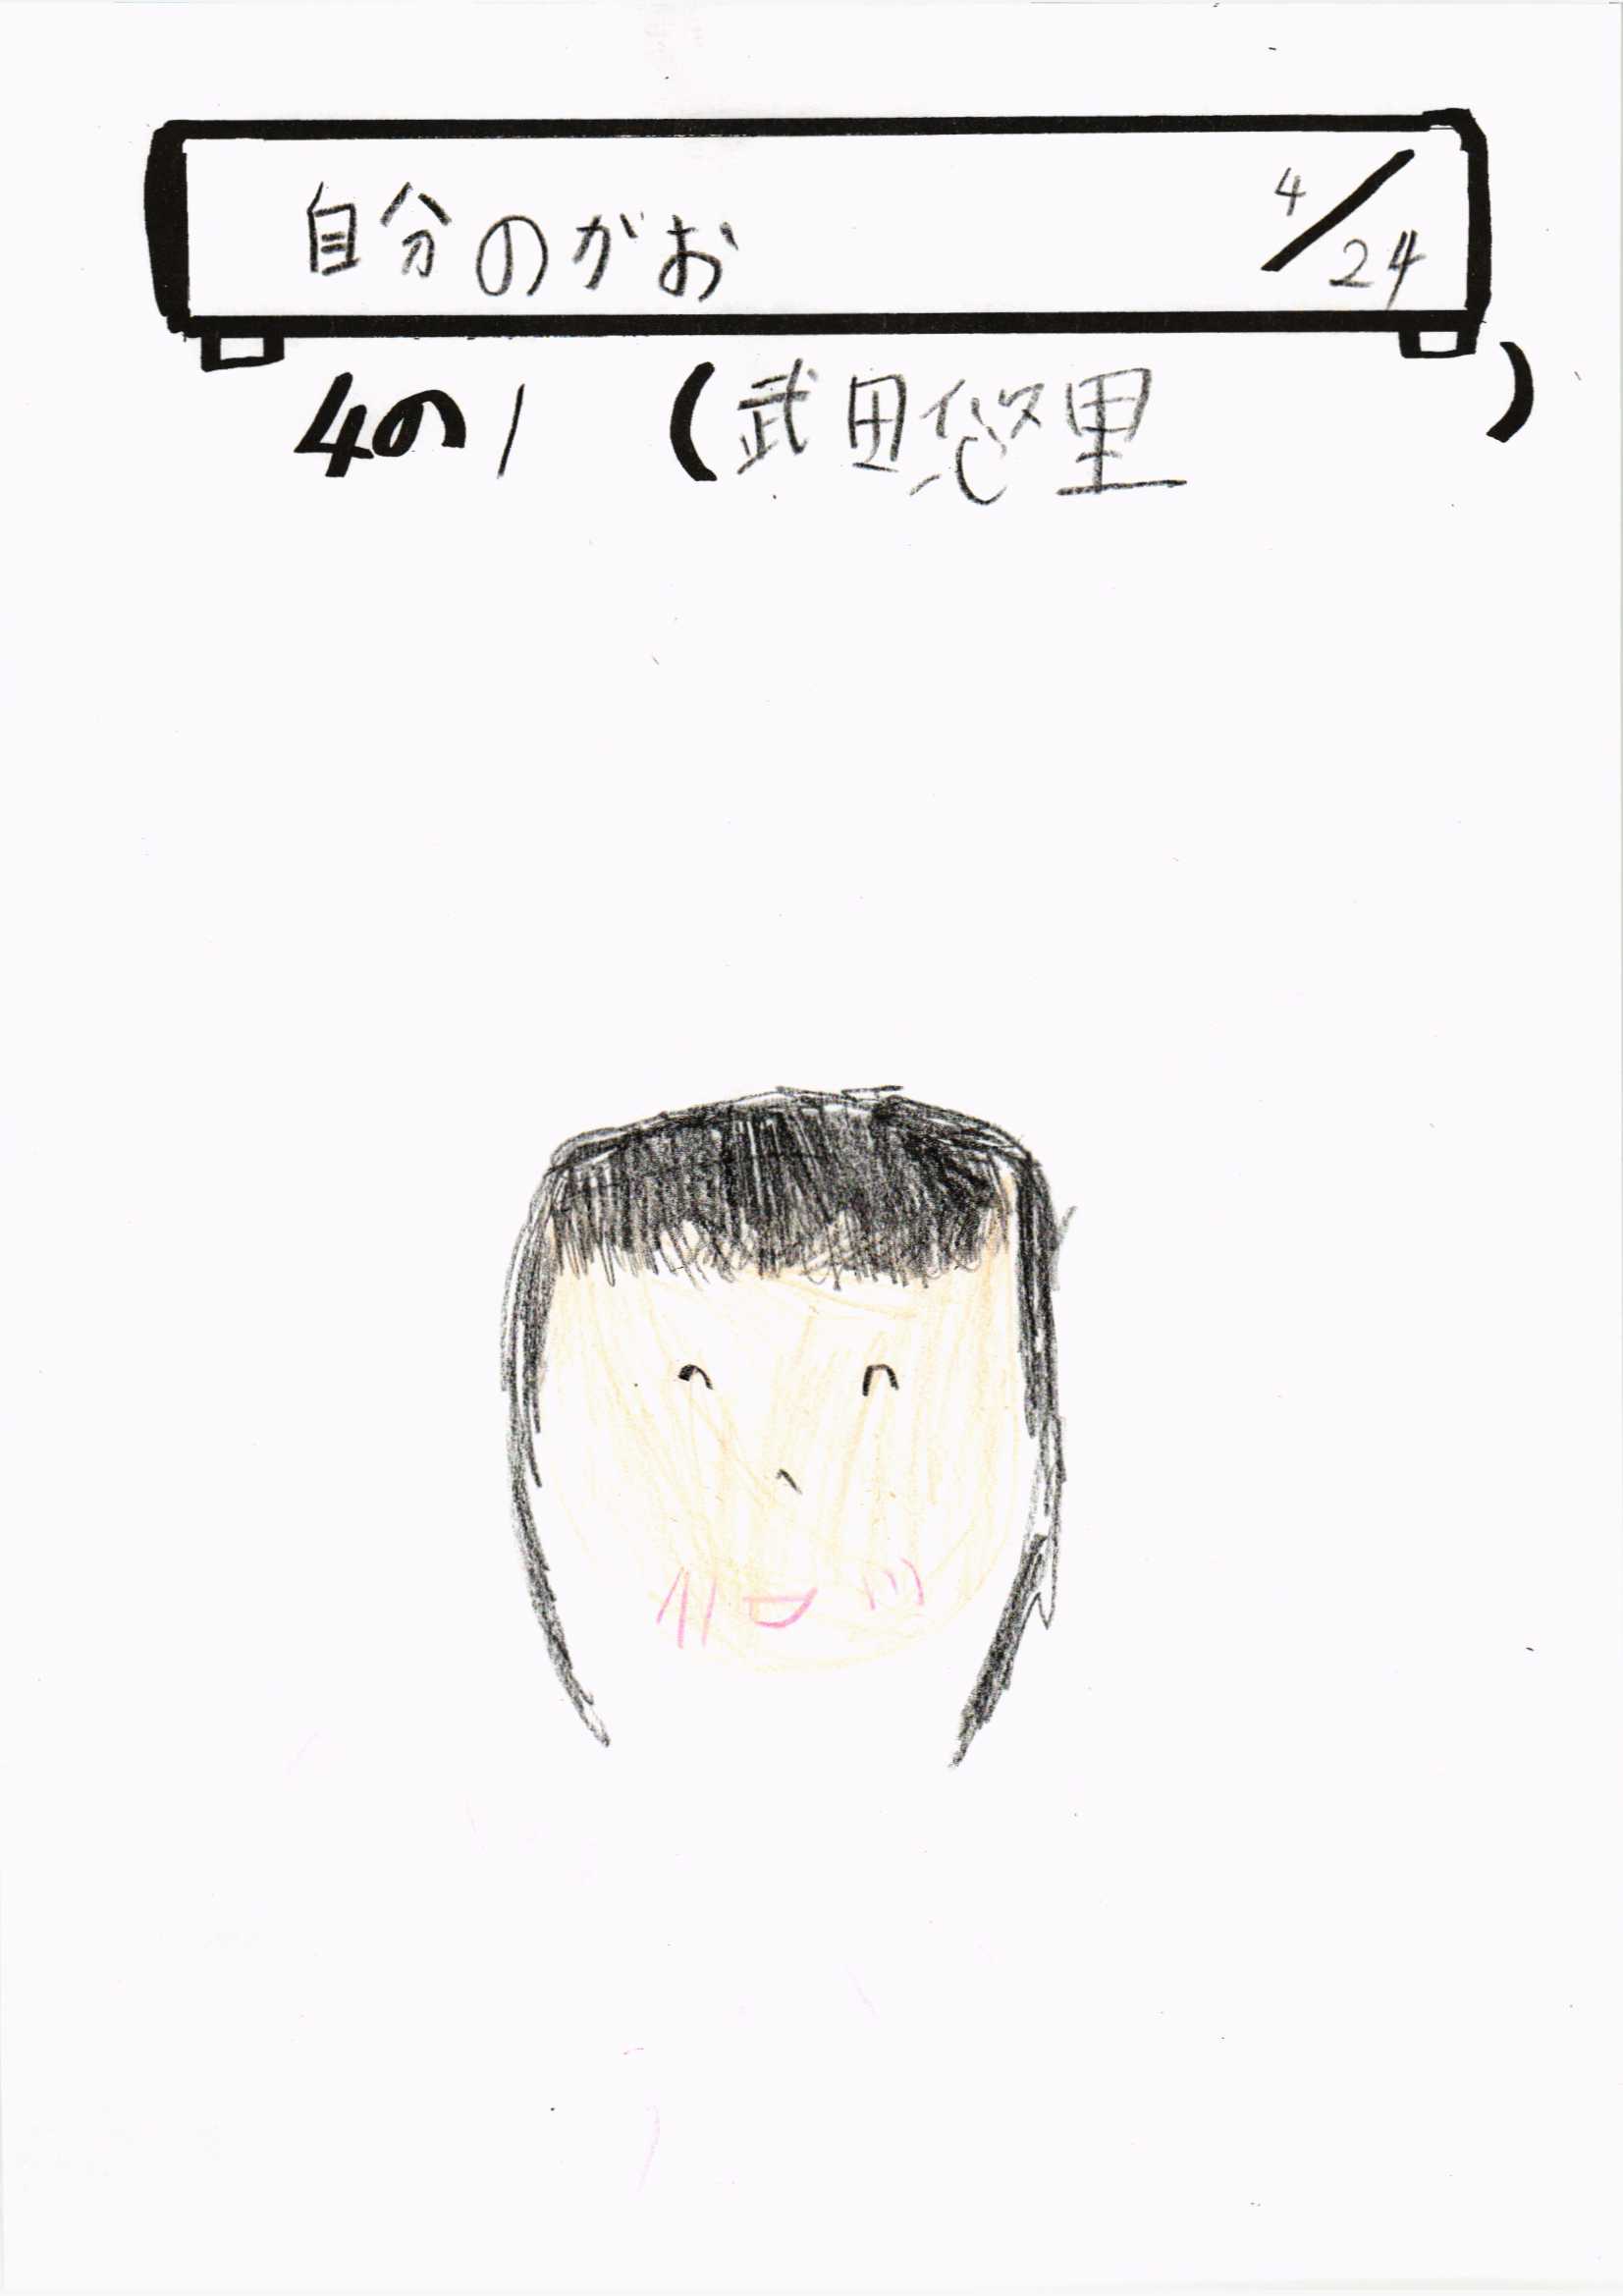 自分のがお 4/24
4の1 (武田悠里)